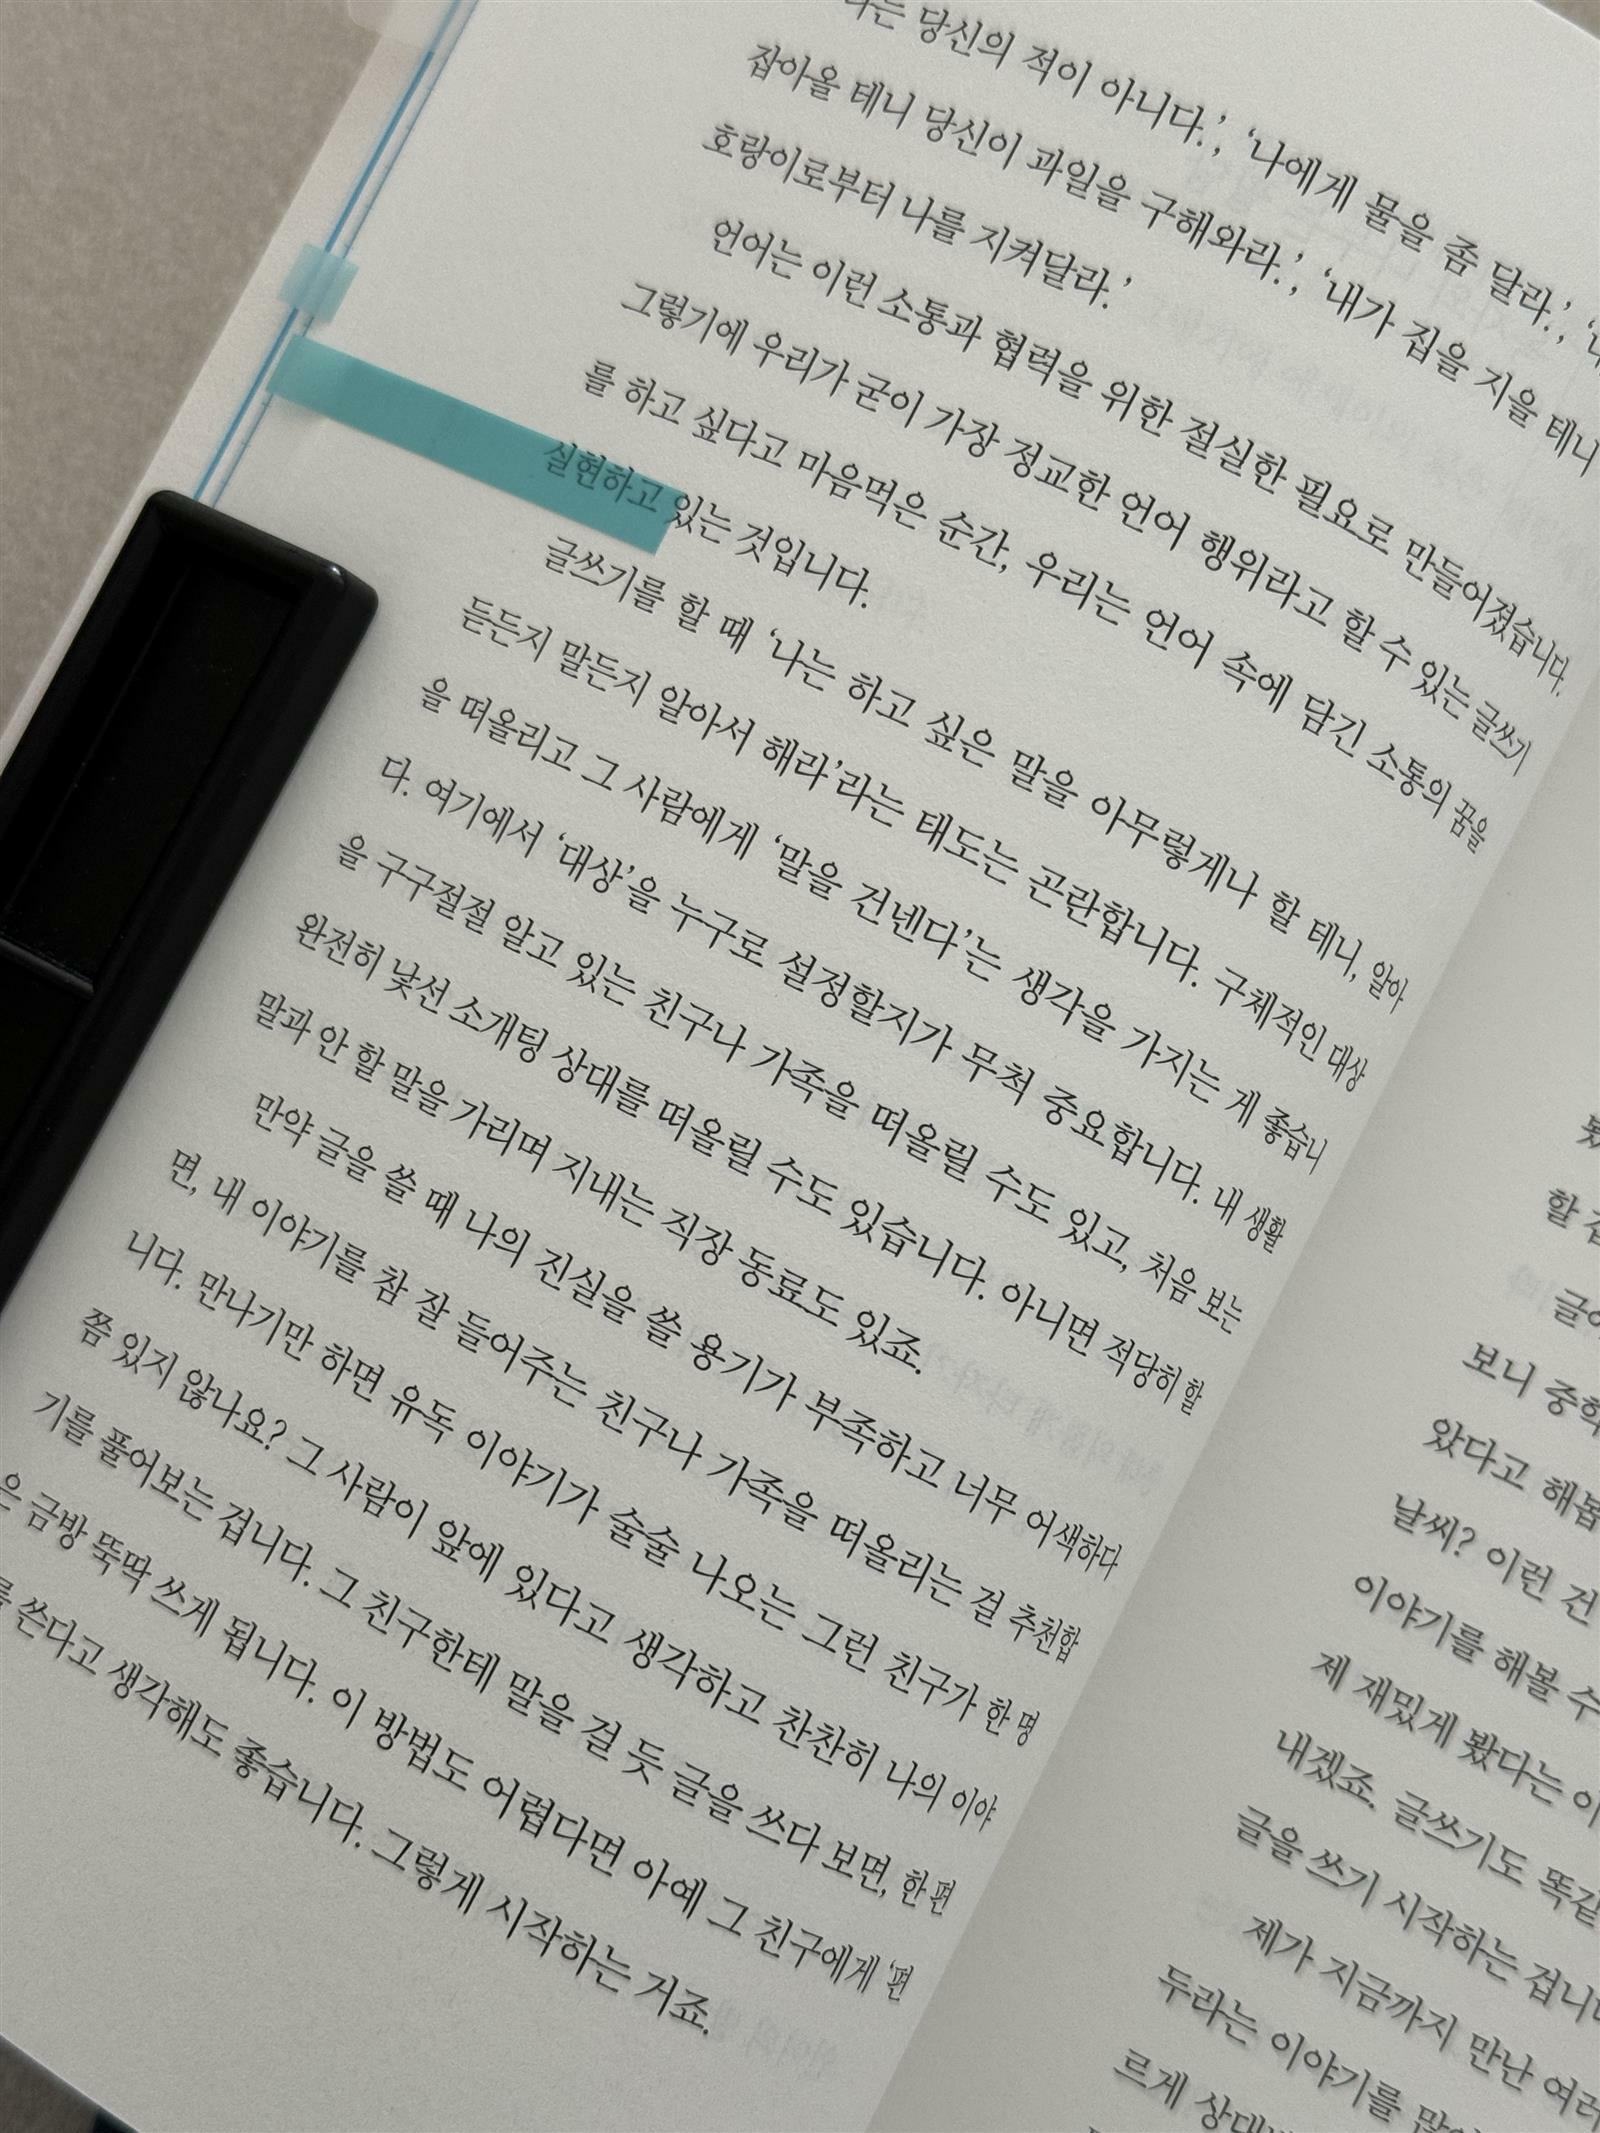 당신의 적이 아니다.’, ‘나에게 물을 좀 달라.’,
잡아올 테니 당신이 과일을 구해와라.’, ‘내가 집을 지을 테니
호랑이로부터 나를 지켜달라.’
언어는 이런 소통과 협력을 위한 절실한 필요로 만들어졌습니다.
그렇기에 우리가 굳이 가장 정교한 언어 행위라고 할 수 있는 글쓰기
를 하고 싶다고 마음먹은 순간, 우리는 언어 속에 담긴 소통의 꿈을
실현하고 있는 것입니다.
글쓰기를 할 때 ‘나는 하고 싶은 말을 아무렇게나 할 테니, 알아
듣든지 말든지 알아서 해라’라는 태도는 곤란합니다. 구체적인 대상
을 떠올리고 그 사람에게 ‘말을 건넨다’는 생각을 가지는 게 좋습니
다. 여기에서 ‘대상’을 누구로 설정할지가 무척 중요합니다. 내 생활
을 구구절절 알고 있는 친구나 가족을 떠올릴 수도 있고, 처음 보는
완전히 낯선 소개팅 상대를 떠올릴 수도 있습니다. 아니면 적당히 할
말과 안 할 말을 가리며 지내는 직장 동료도 있죠.
만약 글을 쓸 때 나의 진실을 쓸 용기가 부족하고 너무 어색하다
면, 내 이야기를 참 잘 들어주는 친구나 가족을 떠올리는 걸 추천합
니다. 만나기만 하면 유독 이야기가 술술 나오는 그런 친구가 한 명
쯤 있지 않나요? 그 사람이 앞에 있다고 생각하고 찬찬히 나의 이야
기를 풀어보는 겁니다. 그 친구한테 말을 걸 듯 글을 쓰다 보면, 한 편
은 금방 뚝딱 쓰게 됩니다. 이 방법도 어렵다면 아예 그 친구에게 ‘편
를 쓴다고 생각해도 좋습니다. 그렇게 시작하는 거죠.
할
보니
았다고 해봅
날씨? 이런 건
이야기를 해볼 수
제 재밌게 봤다는
내겠죠. 글쓰기도 똑같
글을 쓰기 시작하는 겁니다
제가 지금까지 만난 여러
두라는 이야기를
르게